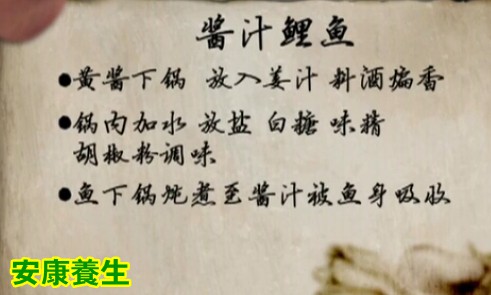 酱汁鲤鱼
●黄酱下锅 放入姜汁 料酒煸香
●锅内加水 放盐 白糖 味精
胡椒粉调味
●鱼下锅炖煮至酱汁被鱼身吸收
安康養生